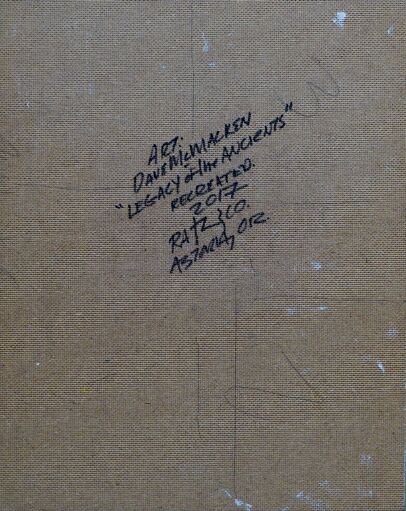 ART:
DAVE McMACKEN
"LEGACY of the ANCIENTS"
RECREATED.
2017
CO.
ASTORIA, OR.